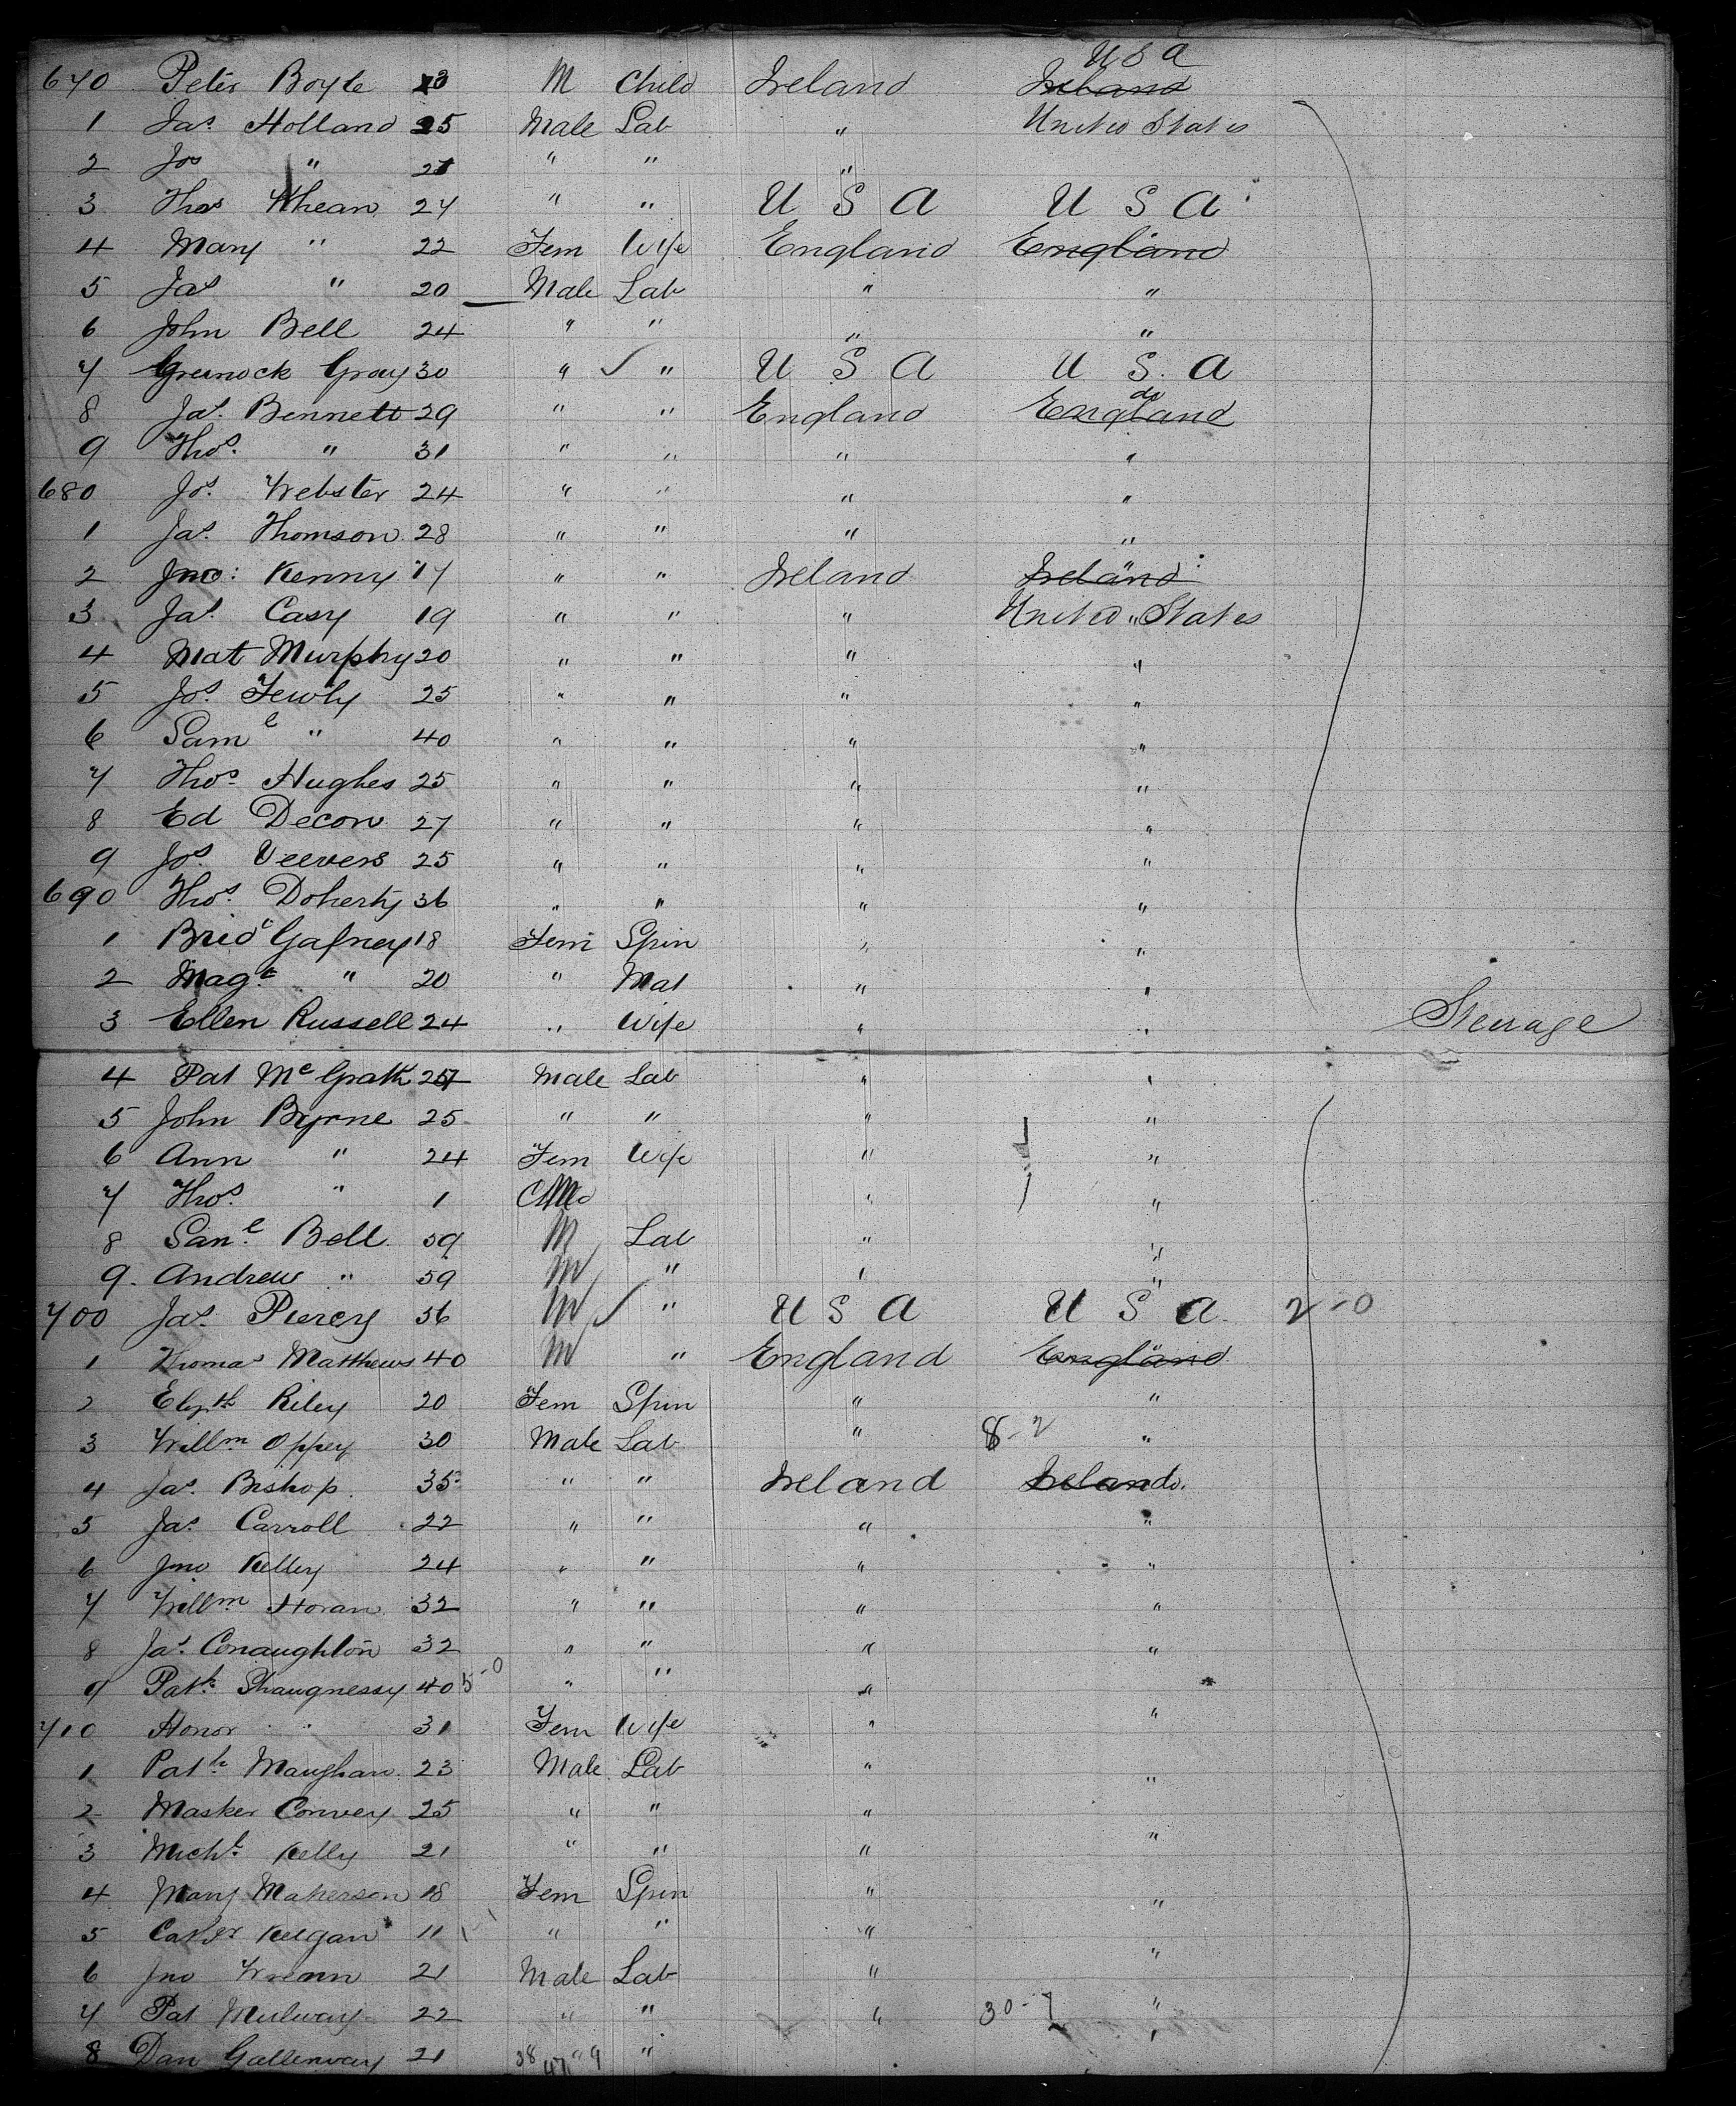 U S A
670 Peter Boyle 3 M Child Ireland Ireland
1 Jas Holland 25 Male Lab " United States
2 Jos " 21 " " "
3 Thos 24 " " U S A U S A
4 Mary " 22 Fem Wife England England
5 Jas " 20 Male Lab " "
6 John Bell 24 " " " "
7 Greenock Gray 30 " ✓ " U S A U S A
do
8 Jas. Bennett 29 " " England England
9 Thos. " 31 " " " "
680 Jos. Webster 24 " " " "
1 Jas. Thomson 28 " " " "
2 Jno: Kenny 17 " " Ireland Ireland
3 Jas. Casy 19 " " " United States
4 Mat Murphy 20 " " " "
5 Jos 25 " " " "
6 Saml " 40 " " " "
7 Thos. Hughes 25 " " " "
8 Ed Decon 27 " " " "
9 Jos. Veevers 25 " " " "
690 Thos. Doherty 36 " " " "
1 Brid Gafney 18 Fem Spin " "
2 Magt " 20 " Mat " "
3 Ellen Russell 24 " Wife " " Steerage
4 Pat Mc Grath 27 Male Lab " "
5 John Byrne 25 " " " "
6 Ann " 24 Fem Wife " "
7 Thos. " 1 " "
8 Saml. Bell 59 M Lab " "
9. Andrew " 59 M " " "
700 Jas Piercy 56 M ✓ " U S A U S A 2-0
1 Thomas Matthews 40 M " England England
2 Elizth Riley 20 Fem Spin " "
3 Willm Oppey 30 Male Lab " 8-2 "
4 Jas. Bishop 35 " " Ireland Ireland do.
5 Jas Carroll 22 " " " "
6 Jno Kelley 24 " " " "
7 Willm Horan 32 " " " "
8 Jas. Conaughton 32 " " " "
9 Patk. Shaugnessy 40 5-0 " " " "
710 Honor " 31 Fem Wife " "
1 Patk Maughan 23 Male Lab " "
2 Masker Convey 25 " " " "
3 Michl. Kelly 21 " " "
4 Mary Makerson 18 Fem Spin " "
5 Keegan 11 1-1 " " " "
6 Jno Wrenn 21 Male Lab "
7 Pat Mulway 22 " " " 30-7 "
8 Dan Gallenway 21 38 47 " 9 " "